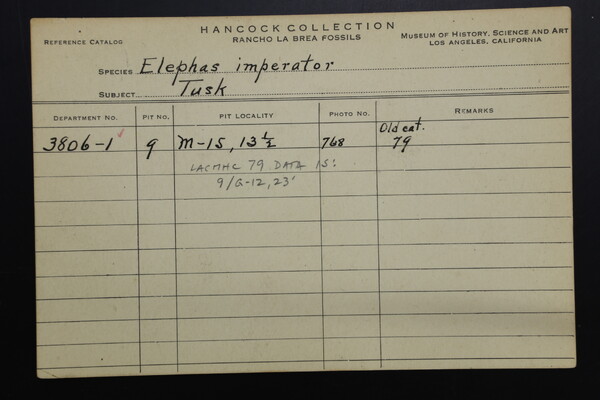 HANCOCK COLLECTION
REFERENCE CATALOG RANCHO LA BREA FOSSILS MUSEUM OF HISTORY, SCIENCE AND ART
LOS ANGELES, CALIFORNIA
SPECIES Elephas imperator
SUBJECT Tusk
DEPARTMENT NO. PIT NO. PIT LOCALITY PHOTO NO. REMARKS
Old cat.
3806-1 9 M-15, 13 1/2 768 79
LACMHC 79 DATA IS:
9/G-12, 23'